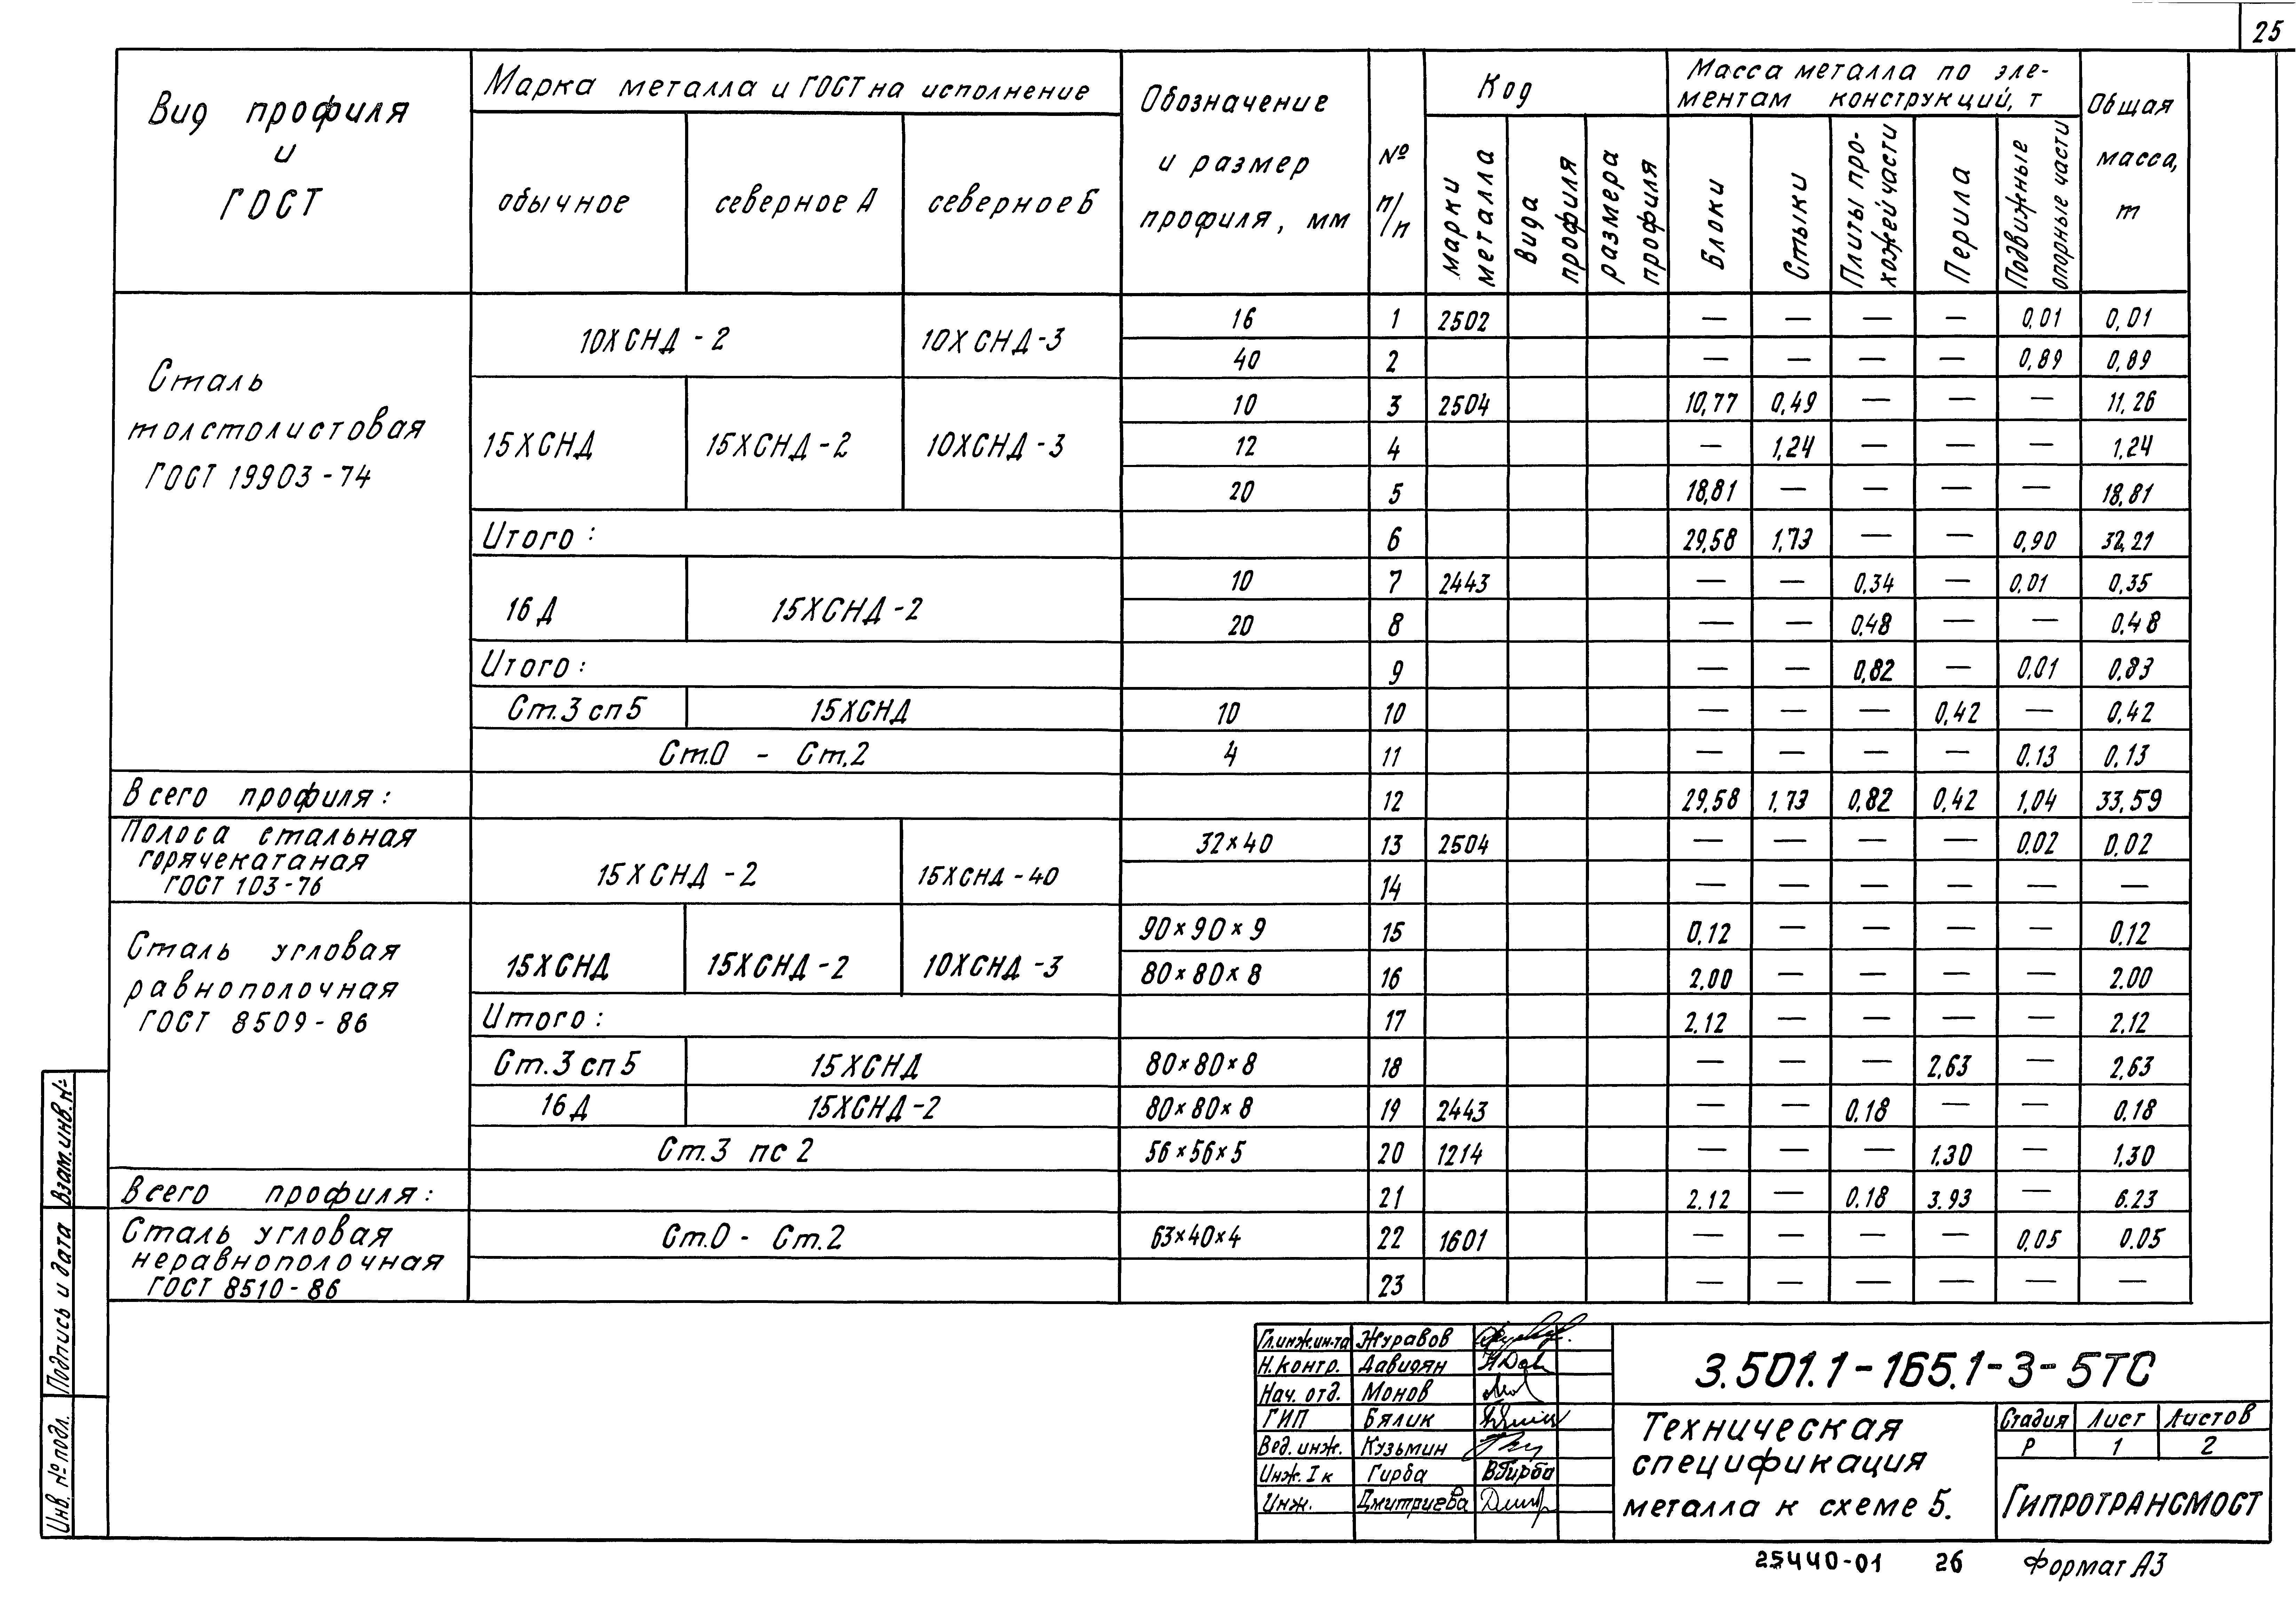 25
Вид профиля и ГОСТ
Марка металла и ГОСТ на исполнение
обычное
северное А
северное Б
Обозначение и размер профиля, мм
№ п/п
Код
марки металла
вида профиля
размера профиля
Масса металла по элементам конструкций, т
Блоки
Стыки
Плиты прохожей части
Перила
Подвижные опорные части
Общая масса, т
Сталь
толстолистовая
ГОСТ 19903-74
10ХСНД-2 10ХСНД-3
16 1 2502 — — — — 0,01 0,01
40 2 — — — — 0,89 0,89
15ХСНД 15ХСНД-2 10ХСНД-3
10 3 2504 10,77 0,49 — — — 11,26
12 4 — 1,24 — — — 1,24
20 5 18,81 — — — — 18,81
Итого: 6 29,58 1,73 — — 0,90 32,21
16Д 15ХСНД-2
10 7 2443 — — 0,34 — 0,01 0,35
20 8 — — 0,48 — — 0,48
Итого: 9 — — 0,82 — 0,01 0,83
Ст.3 сп5 15ХСНД 10 10 — — — 0,42 — 0,42
Ст.0 - Ст.2 4 11 — — — — 0,13 0,13
Всего профиля: 12 29,58 1,73 0,82 0,42 1,04 33,59
Полоса стальная
горячекатаная
ГОСТ 103-76
15ХСНД-2 15ХСНД-40
32×40 13 2504 — — — — 0,02 0,02
14 — — — — — —
Сталь угловая
равнополочная
ГОСТ 8509-86
15ХСНД 15ХСНД-2 10ХСНД-3
90×90×9 15 0,12 — — — — 0,12
80×80×8 16 2,00 — — — — 2.00
Итого: 17 2,12 — — — — 2,12
Ст.3 сп5 15ХСНД 80×80×8 18 — — — 2,63 — 2,63
16Д 15ХСНД-2 80×80×8 19 2443 — — 0,18 — — 0,18
Ст.3 пс 2 56×56×5 20 1214 — — — 1,30 — 1,30
Всего профиля: 21 2,12 — 0,18 3.93 — 6.23
Сталь угловая
неравнополочная
ГОСТ 8510-86
Ст.0 - Ст.2 63×40×4 22 1601 — — — — 0,05 0.05
23 — — — — — —
Взам.инв.№
Подпись и дата
Инв. № подл.
Гл.инж.ин-та Журавов
Н.контр. Давидян
Нач. отд. Монов
ГИП Бялик
Вед. инж. Кузьмин
Инж. I к Гирба ВГирба
Инж. Дмитриева
3.501.1-165.1-3-5ТС
Техническая
спецификация
металла к схеме 5.
Стадия Лист Листов
Р 1 2
Гипротрансмост
25440-01 26 Формат А3